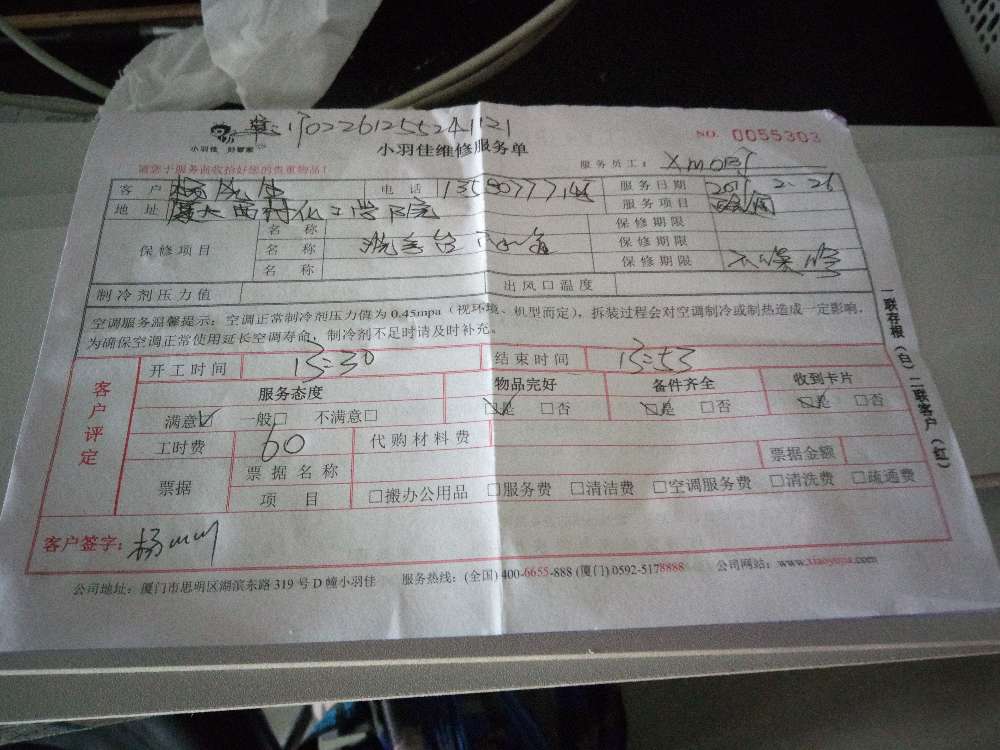 小羽佳 好管家
单:17022612552411121
小羽佳维修服务单
NO. 0055303
请您于服务前收拾好您的贵重物品!
服务员工:
客户 电话 服务日期 2017.2.26
地址 厦大西村化工学院 服务项目
保修项目 名称 保修期限
名称 洗手台 保修期限
名称 保修期限 不保修
制冷剂压力值 出风口温度
空调服务温馨提示:空调正常制冷剂压力值为0.45mpa(视环境、机型而定),拆装过程会对空调制冷或制热造成一定影响,
为确保空调正常使用延长空调寿命,制冷剂不足时请及时补充。
一联存根(白)二联客户(红)
客户评定
开工时间 15:30 结束时间 15:53
服务态度 物品完好 备件齐全 收到卡片
满意☑ 一般□ 不满意□ ☑是 □否 ☑是 □否 ☑是 □否
工时费 60 代购材料费
票据 票据名称 票据金额
项目 □搬办公用品 □服务费 □清洁费 □空调服务费 □清洗费 □疏通费
客户签字:杨
公司地址:厦门市思明区湖滨东路319号D幢小羽佳 服务热线:(全国)400-6655-888(厦门)0592-5178888 公司网站:www.xiaoyujia.com